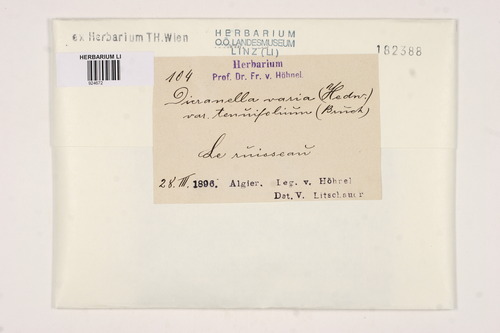 ex Herbarium TH.Wien
HERBARIUM
O.Ö. LANDESMUSEUM
LINZ (LI)
182388
HERBARIUM LI
924672
Herbarium
Prof. Dr. Fr. v. Höhnel.
104
Dicranella varia (Hedw.)
var. tenuifolium (Bruch)
Le ruisseau
28. III. 1896. Algier. Leg. v. Höhnel
Det. V. Litschauer